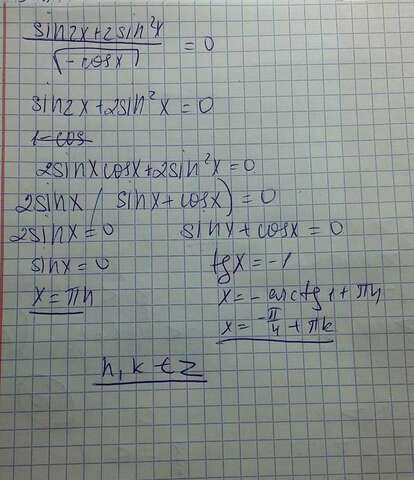 sin2x+2sin²x / √(-cosx) = 0
sin2x+2sin²x=0
1-cos
2sinxcosx+2sin²x=0
2sinx(sinx+cosx)=0
2sinx=0 sinx+cosx=0
sinx=0 tgx=-1
x=πn x=-arctg1+πn
x=-π/4+πk
n,k∈Z